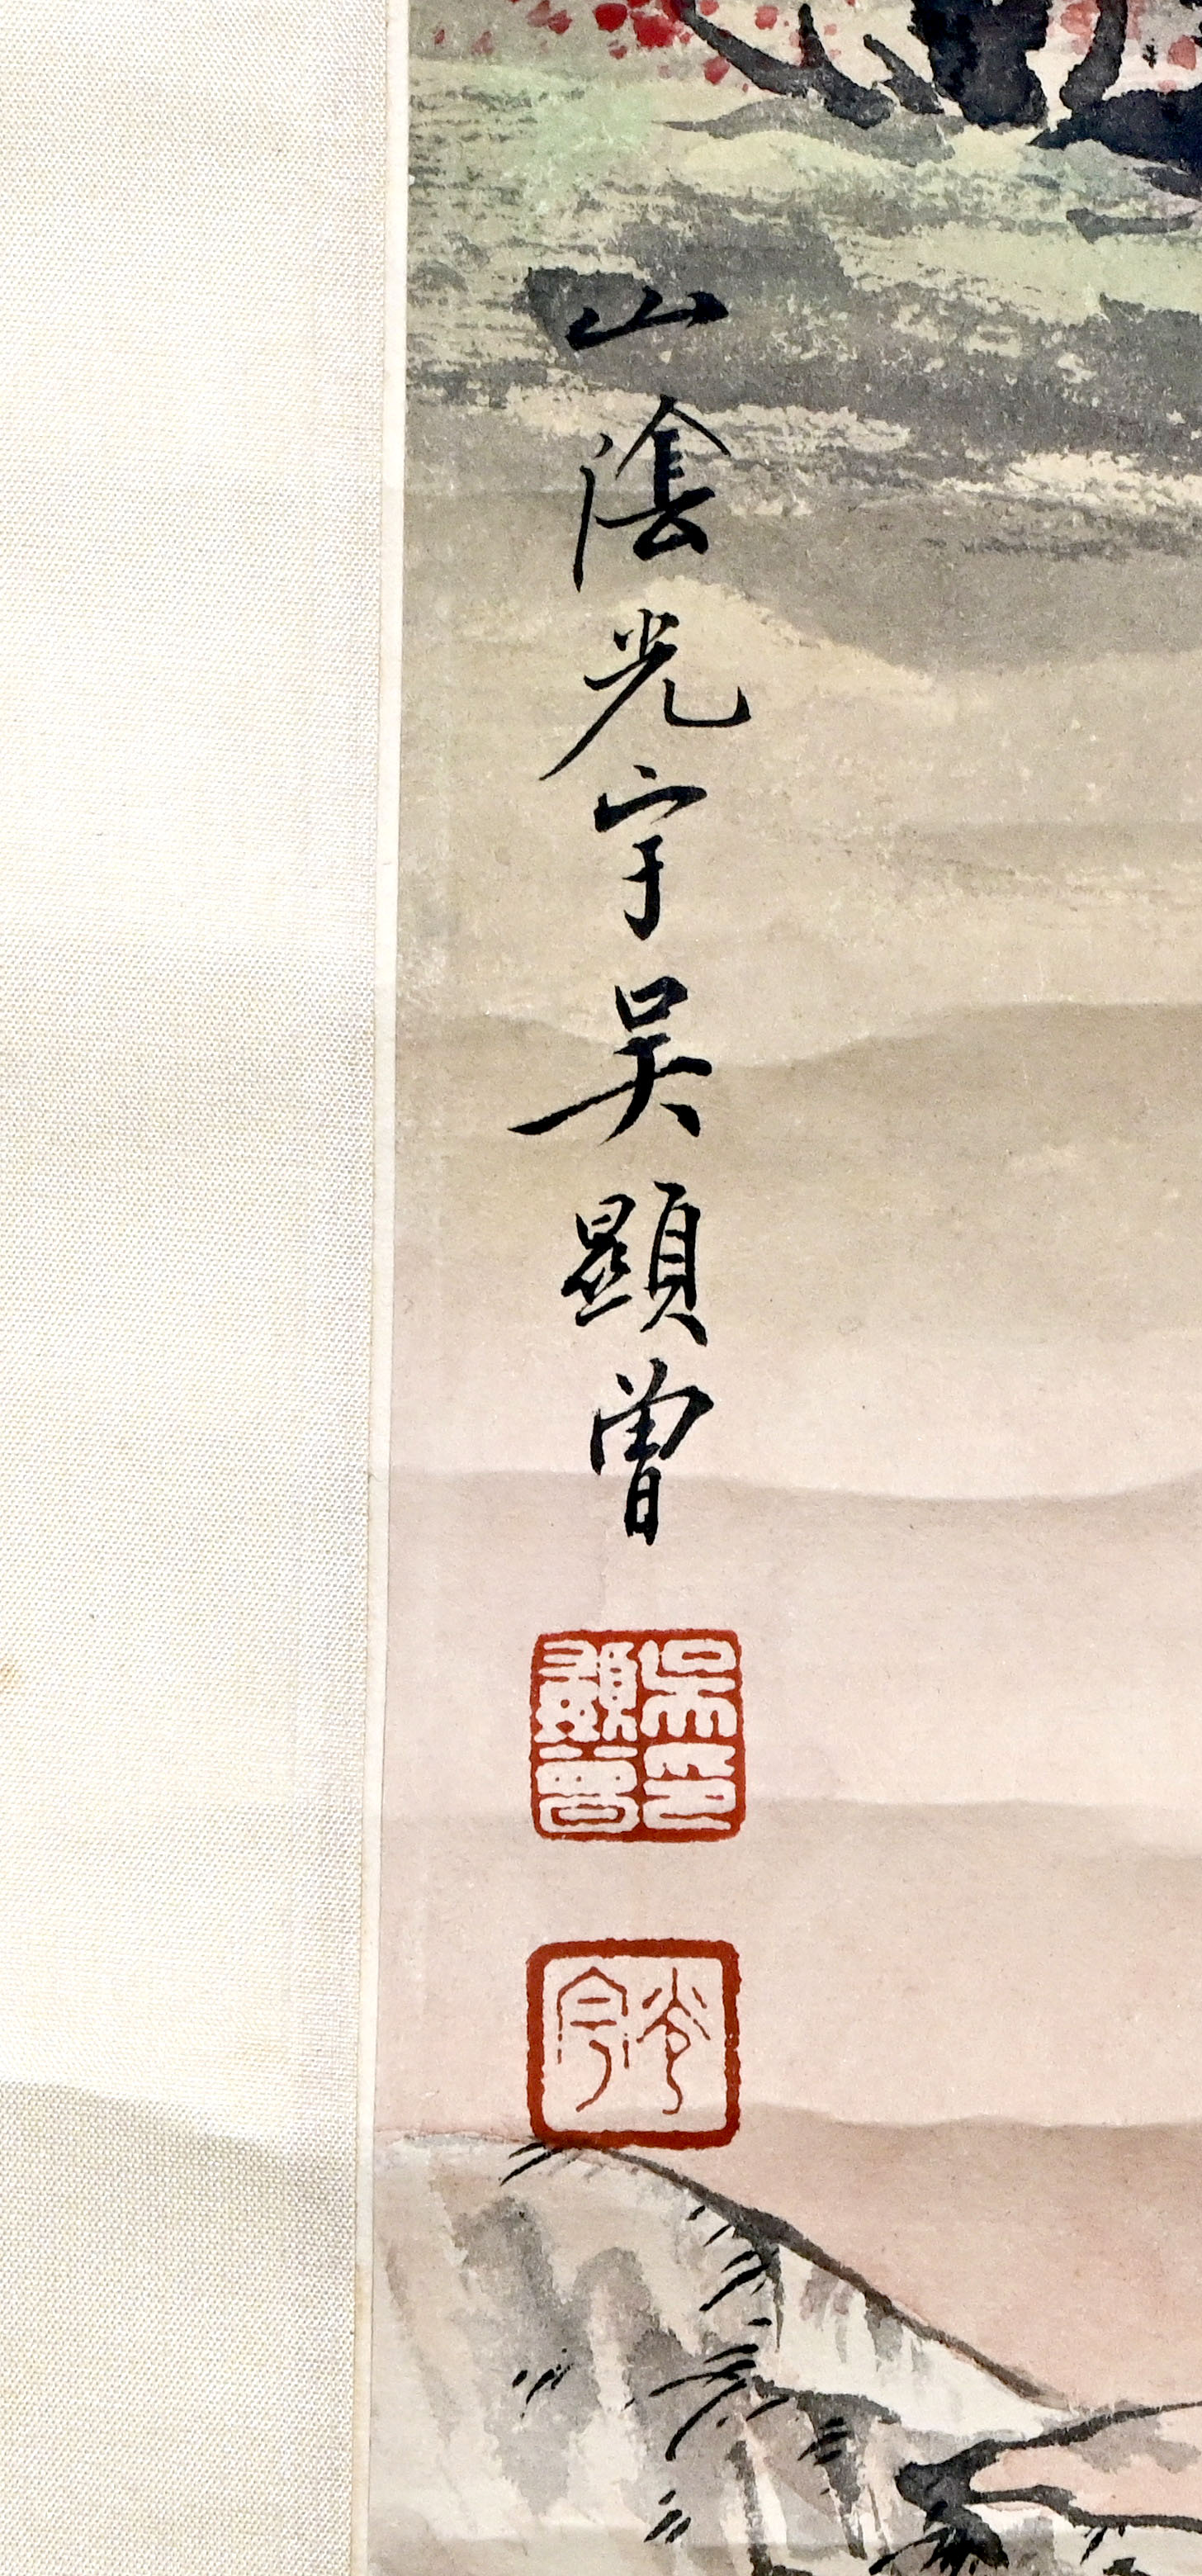 山陰光宇吳顯曾
吳顯曾印
光宇